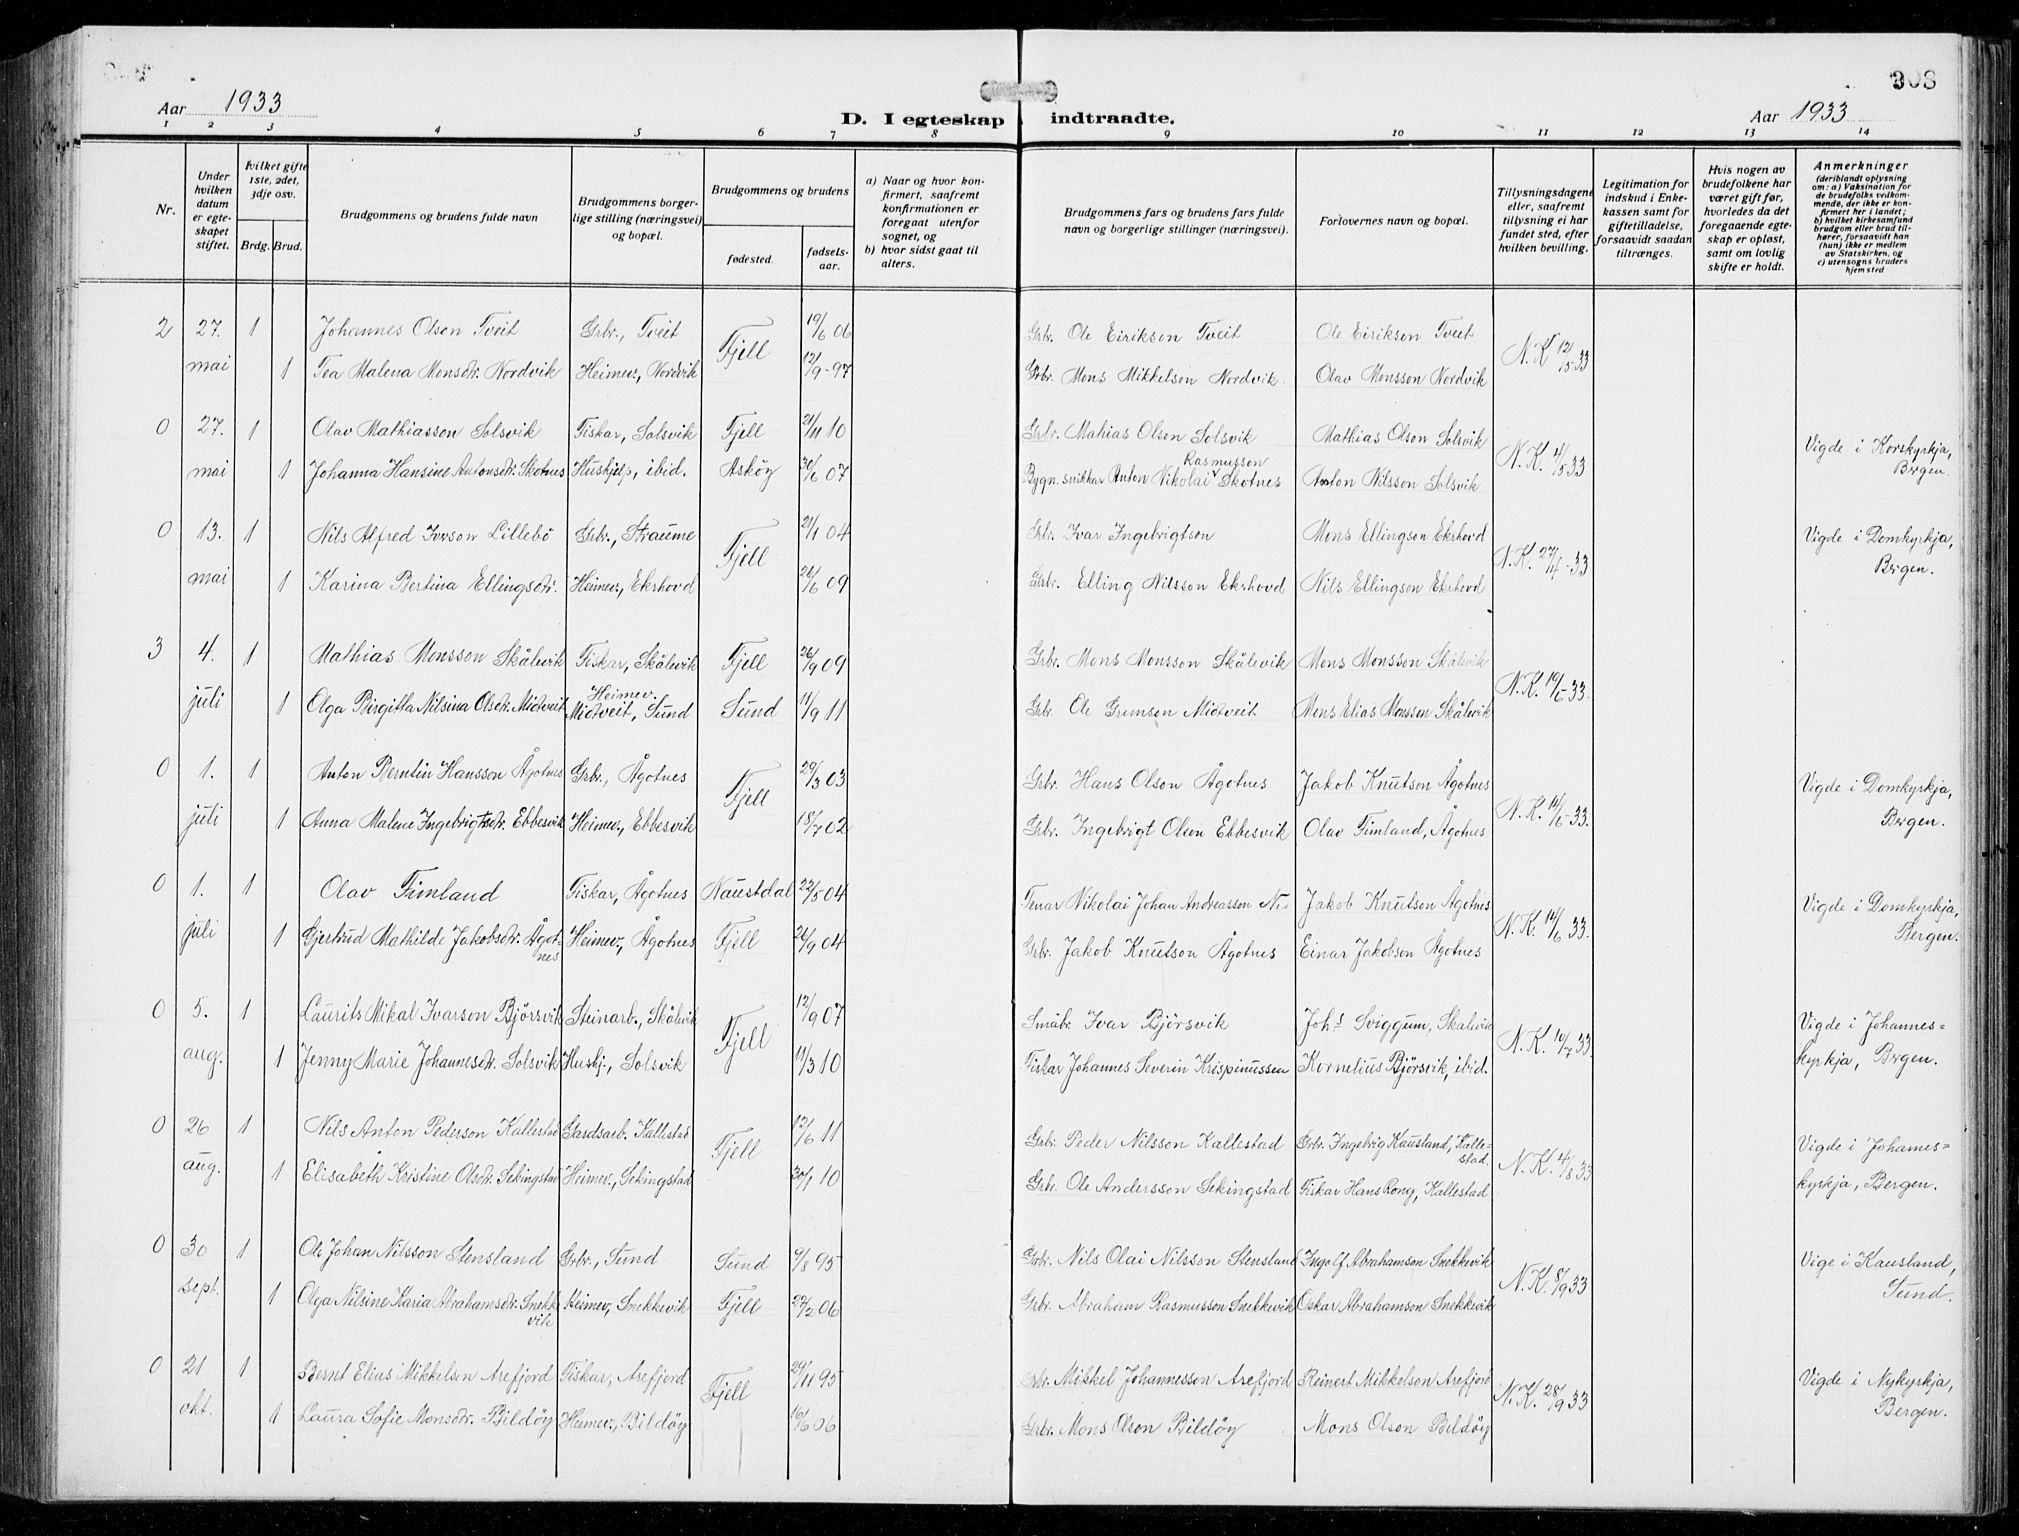 308
Aar 1933
D. I egteskap indtraadte.
Aar 1933
1 2 3 4 5 6 7 8 9 10 11 12 13 14
Nr.
Under hvilken datum er egteskapet stiftet.
hvilket gifte 1ste, 2det, 3dje osv.
Brdg. Brud.
Brudgommens og brudens fulde navn
Brudgommens borgerlige stilling (næringsvei) og bopæl.
Brudgommens og brudens
fødested.
fødselsaar.
a) Naar og hvor konfirmert, saafremt konfirmationen er foregaat utenfor sognet, og
b) hvor sidst gaat til alters.
Brudgommens fars og brudens fars fulde navn og borgerlige stillinger (næringsvei).
Forlovernes navn og bopæl.
Tillysningsdagene eller, saafremt tillysning ei har fundet sted, efter hvilken bevilling.
Legitimation for indskud i Enkekassen samt for giftetilladelse, forsaavidt saadan tiltrænges.
Hvis nogen av brudefolkene har været gift før, hvorledes da det foregaaende egteskap er opløst, samt om lovlig skifte er holdt.
Anmerkninger
(deriblandt oplysning om: a) Vaksination for de brudefolks velkommende, der ikke er konfirmert her i landet; b) hvilket kirkesamfund brudgom eller brud tilhører, forsaavidt han (hun) ikke er medlem av Statskirken, og c) utensogns bruders hjemsted
2 27. 1 Johannes Olsen Tveit Grbr., Tveit Fjell 19/6 06 Grbr. Ole Eirikson Tveit Ole Eirikson Tveit N.K 12/5-33
mai 1 Tea Malena Monsdtr. Nordvik Heimev., Nordvik 12/9-97 Grbr. Mons Mikkelson Nordvik. Olav Monsson Nordvik
0 27. 1 Olav Mathiasson Solsvik Fiskar, Solsvik Fjell 21/11 10 Grbr. Mahias Olsen Solsvik Mathias Olson Solsvik N.K. 4/5 33 Vigde i Korskyrkja, Bergen.
mai 1 Johanna Hansine Antonsdtr. Skotnes Hushjelp, ibid. Askøy 30/6 07 Bygn. snikkar Anton Nikolai Rasmusson Skotnes Anton Nilsson Solsvik
0 13. 1 Nils Alfred Ivrson Lillebö Grbr., Straume Fjell 21/1 04 Grbr. Ivar Ingebrigtson Mons Ellingson Ekrhovd N.K. 27/4-33 Vigde i Domkyrkja, Bergen.
mai 1 Karina Bertina Ellingsdtr. Heimev., Ekrhovd 26/6 09 Grbr. Elling Nilsson Ekrhovd Nils Ellingson Ekrhovd
3 4. 1 Mathias Monsson Skålevik Fiskar, Skålevik Fjell 26/9 09 Grbr. Mons Monsson Skålevik Mons Monsson Skålevik N.K. 19/6-33.
juli 1 Olga Birgitta Nilsina Olsdtr. Midtveit Heimev. Midtveit, Sund Sund 11/9 11 Grbr. Ole Gremson Midtveit Mons Elias Monsson Skålevik
0 1. 1 Anton Berntin Hansson Ågotnes Grbr., Ågotnes Fjell 29/3 03 Grbr. Hans Olson Ågotnes Jakob Knutson Ågotnes N.K. 14/6-33. Vigde i Domkyrkja, Bergen.
juli 1 Anna Malene Ingebrigtsdtr. Ebbesvik Heimev., Ebbesvik 18/7 02 Grbr. Ingebrigt Olson Ebbesvik Olav Fimland, Ågotnes
0 1. 1 Olav Fimland Fiskar, Ågotnes Naustdal 22/5 04 Nikolai Johan Andreasson Jakob Knutson Ågotnes N.K. 14/6 33. Vigde i Domkyrkja, Bergen.
juli 1 Gjertrud Mathilde Jakobsdtr. Ågotnes Heimev., Ågotnes Fjell 24/9 04 Grbr. Jakob Knutson Ågotnes Einar Jakobson Ågotnes
0 5. 1 Laurits Mikal Ivarson Bjørsvik Steinarb., Skålevik Fjell 12/9 07 Småbr. Ivar Bjørsvik Johs Sviggum, Skalevik N.K. 14/7 33. Vigde i Johanneskyrkja, Bergen.
aug. 1 Jenny Marie Johannesdtr. Solsvik Hushj., Solsvik 11/3 10 Fiskar Johannes Severin Krispinussen Kornelius Bjørsvik, ibid.
0 26 1 Nils Anton Pederson Kallestad Gardsarb. Kallestad Fjell 12/6 11 Grbr. Peder Nilsson Kallestad Grbr. Ingebrig Kausland, Kallestad. N.K. 4/8 33 Vigde i Johaneskyrkja, Bergen.
aug. 1 Elisabeth Kristine Olsdtr. Sekingstad Heimev., Sekingstad 30/1 10 Grbr. Ole Andersson Sekingstad Fiskar Hans Rong, Kallestad
0 30 1 Ole Johan Nilsson Stensland Grbr., Sund Sund 9/8 95 Grbr. Nils Olai Nilsson Stensland Ingolf Abrahamson Snekkevik N.K. 8/9 33 Vige i Kausland, Sund.
sept. 1 Olga Nilsine Karia Abrahamsdtr. Snekkevik Heimev., Snekkevik Fjell 27/2 06 Grbr. Abraham Rasmusson Snekkevik Oskar Abrahamson Snekkevik
0 21 1 Bernt Elias Mikkelson Arefjord Fiskar, Arefjord Fjell 29/11 95 Grbr. Mikkel Johannesson Arefjord Reinert Mikkelson Arefjord N.K. 28/9 33 Vigde i Nykyrkja, Bergen.
okt. 1 Laura Sofie Monsdtr. Bildøy Heimev., Bildøy 16/6 06 Grbr. Mons Olson Bildøy Mons Olson Bildøy